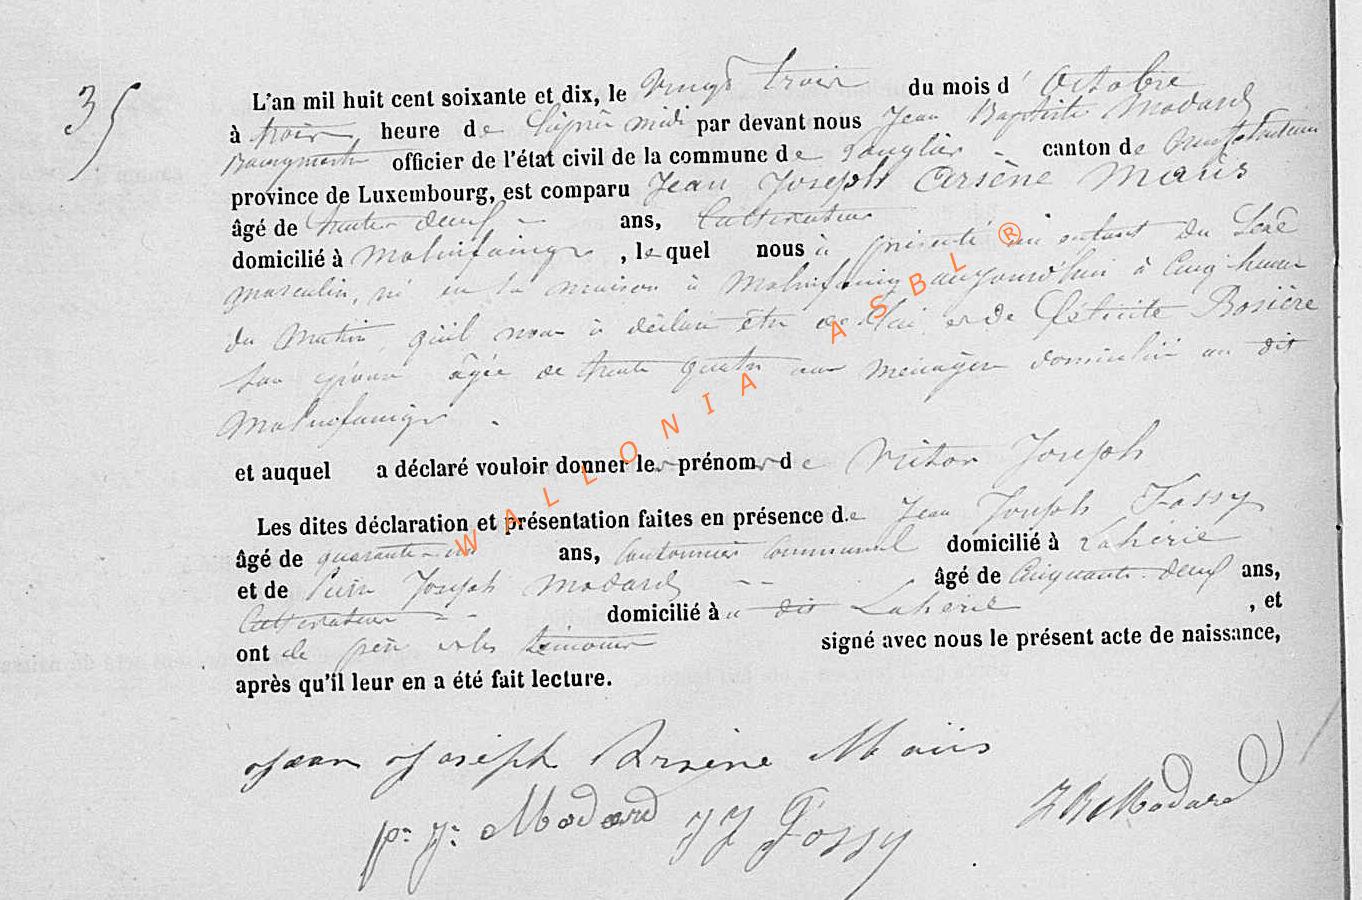 35
L'an mil huit cent soixante et dix, le vingt trois du mois d' Octobre
à trois heure de l'après midi par devant nous Jean Baptiste Modard
Bourgmestre officier de l'état civil de la commune de Longlier canton de Neufchateau
province de Luxembourg, est comparu Jean Joseph Arsène Maus
âgé de trente deux ans, Cultivateur
domicilié à Malvofaing , lequel nous à présenté un enfant du Sexe
masculin, né en sa maison à Malvofaing aujourd'hui à Cinq heures
du Matin, qu'il nous à déclaré être de lui et de Félicité Rosière
son épouse âgée de trente quatre ans ménagère domiciliée au dit
Malvofaing .
et auquel a déclaré vouloir donner les prénoms de Victor Joseph
Les dites déclaration et présentation faites en présence de Jean Joseph Fossy
âgé de quarante un ans, Cantonnier Communal domicilié à Laherie
et de Pierre Joseph Modard âgé de Cinquante deux ans,
Cultivateur domicilié à u dit Laherie , et
ont le père et les témoins signé avec nous le présent acte de naissance,
après qu'il leur en a été fait lecture.
Jean Joseph Arsène Maus
p. j. Modard JJ Fossy J B Modard
WALLONIA ASBL ®